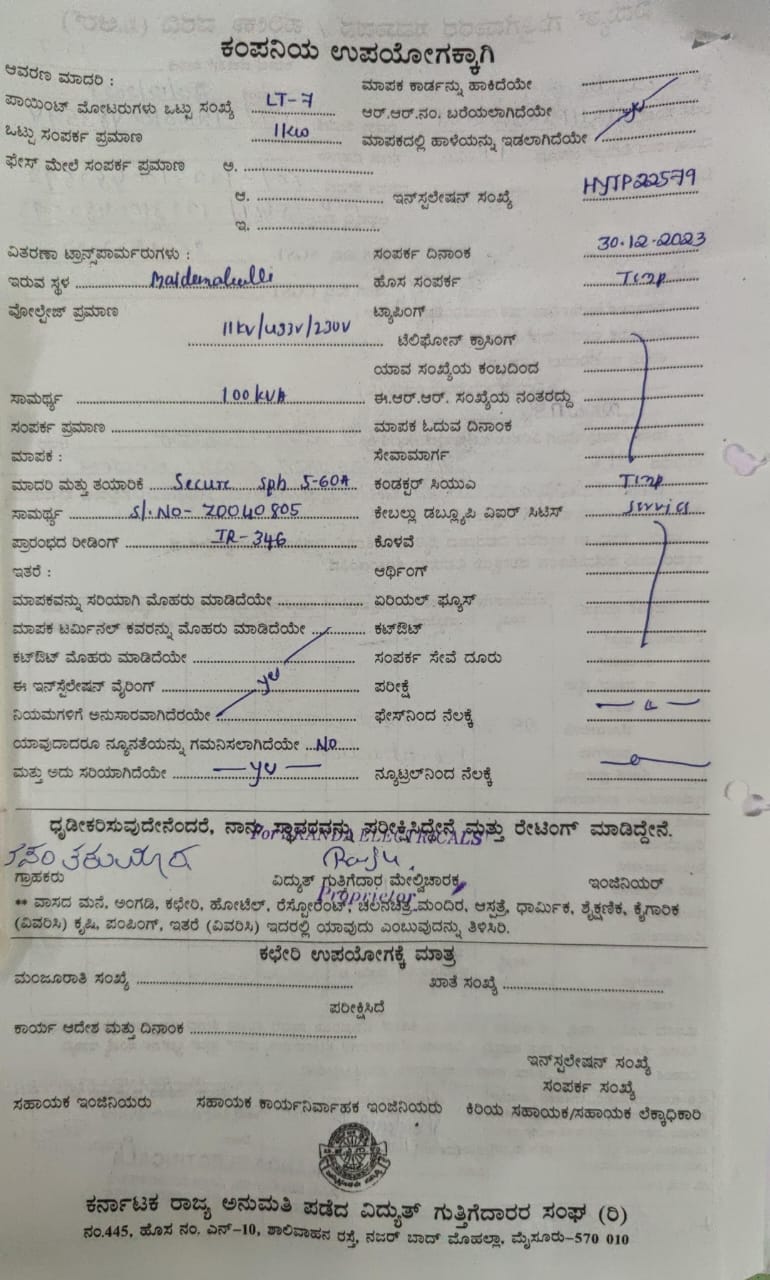 ಕಂಪನಿಯ ಉಪಯೋಗಕ್ಕಾಗಿ
ಆವರಣ ಮಾದರಿ : ಮಾಪಕ ಕಾರ್ಡನ್ನು ಹಾಕಿದೆಯೇ
ಪಾಯಿಂಟ್ ಮೋಟರುಗಳು ಒಟ್ಟು ಸಂಖ್ಯೆ LT-7 ಆರ್.ಆರ್.ನಂ. ಬರೆಯಲಾಗಿದೆಯೇ yes
ಒಟ್ಟು ಸಂಪರ್ಕ ಪ್ರಮಾಣ 1kw ಮಾಪಕದಲ್ಲಿ ಹಾಳೆಯನ್ನು ಇಡಲಾಗಿದೆಯೇ
ಫೇಸ್ ಮೇಲೆ ಸಂಪರ್ಕ ಪ್ರಮಾಣ ಅ.
ಆ. ಇನ್‌ಸ್ಟಲೇಷನ್ ಸಂಖ್ಯೆ HYTP22579
ಇ.
ವಿತರಣಾ ಟ್ರಾನ್ಸ್‌ಫಾರ್ಮರುಗಳು : ಸಂಪರ್ಕ ದಿನಾಂಕ 30-12-2023
ಇರುವ ಸ್ಥಳ ಹೊಸ ಸಂಪರ್ಕ Temp
ವೋಲ್ಟೇಜ್ ಪ್ರಮಾಣ ಟ್ಯಾಪಿಂಗ್
11kv/433v/230v ಟೆಲಿಫೋನ್ ಕ್ರಾಸಿಂಗ್
ಯಾವ ಸಂಖ್ಯೆಯ ಕಂಬದಿಂದ
ಸಾಮರ್ಥ್ಯ 100kVA ಈ.ಆರ್.ಆರ್. ಸಂಖ್ಯೆಯ ನಂತರದ್ದು
ಸಂಪರ್ಕ ಪ್ರಮಾಣ ಮಾಪಕ ಓದುವ ದಿನಾಂಕ
ಮಾಪಕ : ಸೇವಾಮಾರ್ಗ
ಮಾದರಿ ಮತ್ತು ತಯಾರಿಕೆ Secure Sph 5-60A ಕಂಡಕ್ಟರ್ ಸಿಯುಎ Temp
ಸಾಮರ್ಥ್ಯ Sl.No- Z0040805 ಕೇಬಲ್ಲು ಡಬ್ಲ್ಯೂಪಿ ವಿಐಆರ್ ಸಿಟಿಸ್ service
ಪ್ರಾರಂಭದ ರೀಡಿಂಗ್ IR-346 ಕೊಳವೆ
ಇತರೆ : ಆರ್ಥಿಂಗ್
ಮಾಪಕವನ್ನು ಸರಿಯಾಗಿ ಮೊಹರು ಮಾಡಿದೆಯೇ ಏರಿಯಲ್ ಫ್ಯೂಸ್
ಮಾಪಕ ಟರ್ಮಿನಲ್ ಕವರನ್ನು ಮೊಹರು ಮಾಡಿದೆಯೇ ಕಟ್‌ಔಟ್
ಕಟ್‌ಔಟ್ ಮೊಹರು ಮಾಡಿದೆಯೇ ಸಂಪರ್ಕ ಸೇವೆ ದೂರು
ಈ ಇನ್‌ಸ್ಟೆಲೇಷನ್ ವೈರಿಂಗ್ yes ಪರೀಕ್ಷೆ
ನಿಯಮಗಳಿಗೆ ಅನುಸಾರವಾಗಿದೆರಯೇ ಫೇಸ್‌ನಿಂದ ನೆಲಕ್ಕೆ
ಯಾವುದಾದರೂ ನ್ಯೂನತೆಯನ್ನು ಗಮನಿಸಲಾಗಿದೆಯೇ No
ಮತ್ತು ಅದು ಸರಿಯಾಗಿದೆಯೇ yes ನ್ಯೂಟ್ರಲ್‌ನಿಂದ ನೆಲಕ್ಕೆ
ಧೃಡೀಕರಿಸುವುದೇನೆಂದರೆ, ನಾನು ಸ್ಥಾವರವನ್ನು ಪರೀಕ್ಷಿಸಿದ್ದೇನೆ ಮತ್ತು ರೇಟಿಂಗ್ ಮಾಡಿದ್ದೇನೆ.
For ELECTRICALS
ಗ್ರಾಹಕರು ವಿದ್ಯುತ್ ಗುತ್ತಿಗೆದಾರ ಮೇಲ್ವಿಚಾರಕ ಇಂಜಿನಿಯರ್
Proprietor
** ವಾಸದ ಮನೆ, ಅಂಗಡಿ, ಕಛೇರಿ, ಹೋಟೆಲ್, ರೆಸ್ಟೋರೆಂಟ್, ಚಲನಚಿತ್ರ ಮಂದಿರ, ಆಸ್ಪತ್ರೆ, ಧಾರ್ಮಿಕ, ಶೈಕ್ಷಣಿಕ, ಕೈಗಾರಿಕ
(ವಿವರಿಸಿ) ಕೃಷಿ, ಪಂಪಿಂಗ್, ಇತರೆ (ವಿವರಿಸಿ) ಇದರಲ್ಲಿ ಯಾವುದು ಎಂಬುವುದನ್ನು ತಿಳಿಸಿರಿ.
ಕಛೇರಿ ಉಪಯೋಗಕ್ಕೆ ಮಾತ್ರ
ಮಂಜೂರಾತಿ ಸಂಖ್ಯೆ ಖಾತೆ ಸಂಖ್ಯೆ
ಪರೀಕ್ಷಿಸಿದೆ
ಕಾರ್ಯ ಆದೇಶ ಮತ್ತು ದಿನಾಂಕ
ಇನ್‌ಸ್ಟಲೇಷನ್ ಸಂಖ್ಯೆ
ಸಂಪರ್ಕ ಸಂಖ್ಯೆ
ಸಹಾಯಕ ಇಂಜಿನಿಯರು ಸಹಾಯಕ ಕಾರ್ಯನಿರ್ವಾಹಕ ಇಂಜಿನಿಯರು ಕಿರಿಯ ಸಹಾಯಕ/ಸಹಾಯಕ ಲೆಕ್ಕಾಧಿಕಾರಿ
ಕರ್ನಾಟಕ ರಾಜ್ಯ ಅನುಮತಿ ಪಡೆದ ವಿದ್ಯುತ್ ಗುತ್ತಿಗೆದಾರರ ಸಂಘ (ರಿ)
ನಂ.445, ಹೊಸ ನಂ. ಎನ್-10, ಶಾಲಿವಾಹನ ರಸ್ತೆ, ನಜರ್ ಬಾದ್ ಮೊಹಲ್ಲಾ, ಮೈಸೂರು-570 010